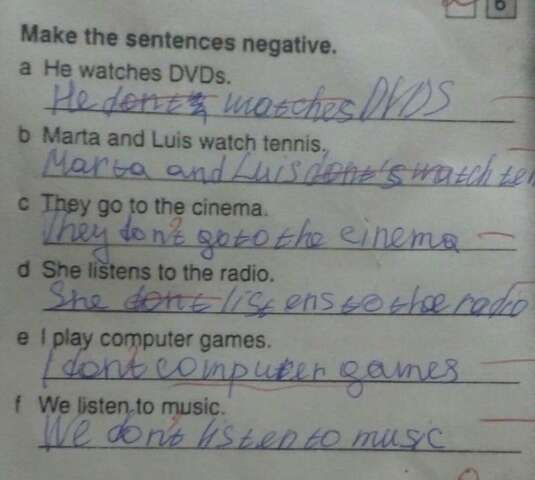 6
Make the sentences negative.
a He watches DVDs.
He dont's watches DVDS
b Marta and Luis watch tennis.
Marta and Luis dont's watch ten
c They go to the cinema.
They don't go to the cinema
d She listens to the radio.
She dont listens to the radio
e I play computer games.
I don't computer games
f We listen to music.
We don't listen to music